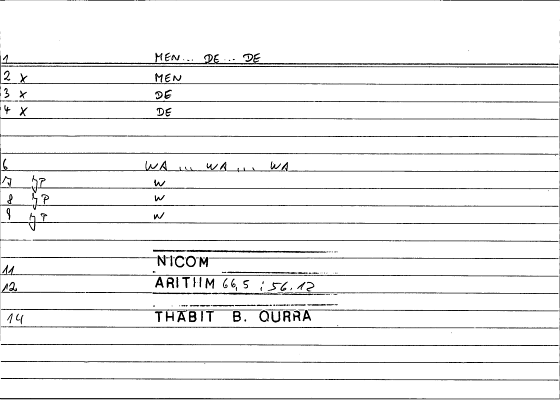 1 MEN... DE... DE
2 x MEN
3 x DE
4 x DE
6 WA ... WA ... WA
7 JP W
8 JP W
9 JP W
11 NICOM
12 ARITHM 66,5 ; 56.12
14 THABIT B. QURRA